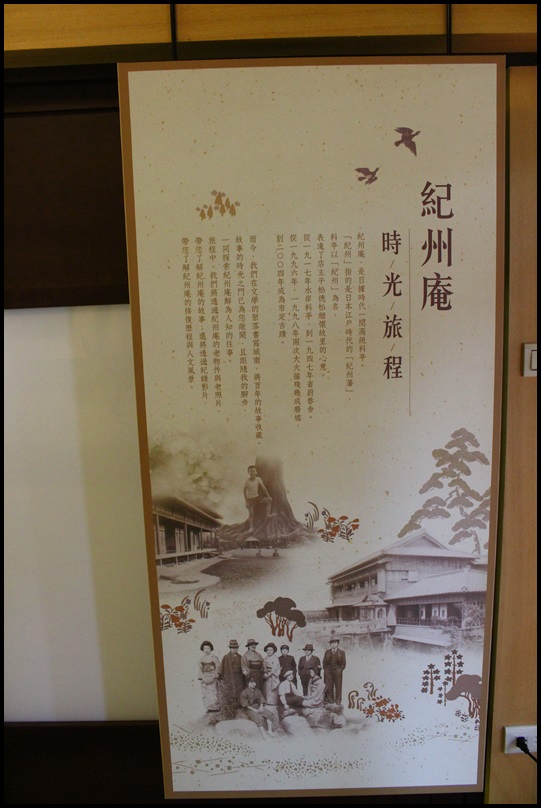 紀州庵
時/光/旅/程
紀州庵，是日據時代一間高級料亭，
「紀州」指的是日本江戶時代的「紀州藩」
料亭以「紀州」為名，
表達了店主平松德松緬懷故里的心意。
從一九一七年水岸料亭，到一九四七年省府眷舍。
從一九九六年，一九九八年兩次大火摧殘幾成廢墟
到二〇〇四年成為市定古蹟。
而今，我們在文學的聚落書寫城南，將百年的故事收藏。
故事的時光之門已為您敞開，且跟隨我的腳步
一同探索紀州庵鮮為人知的往事。
旅程中，我們將透過紀州庵的老物件與老照片
帶您了解紀州庵的故事；還將透過紀錄影片，
帶您了解紀州庵的修復歷程與人文風景。